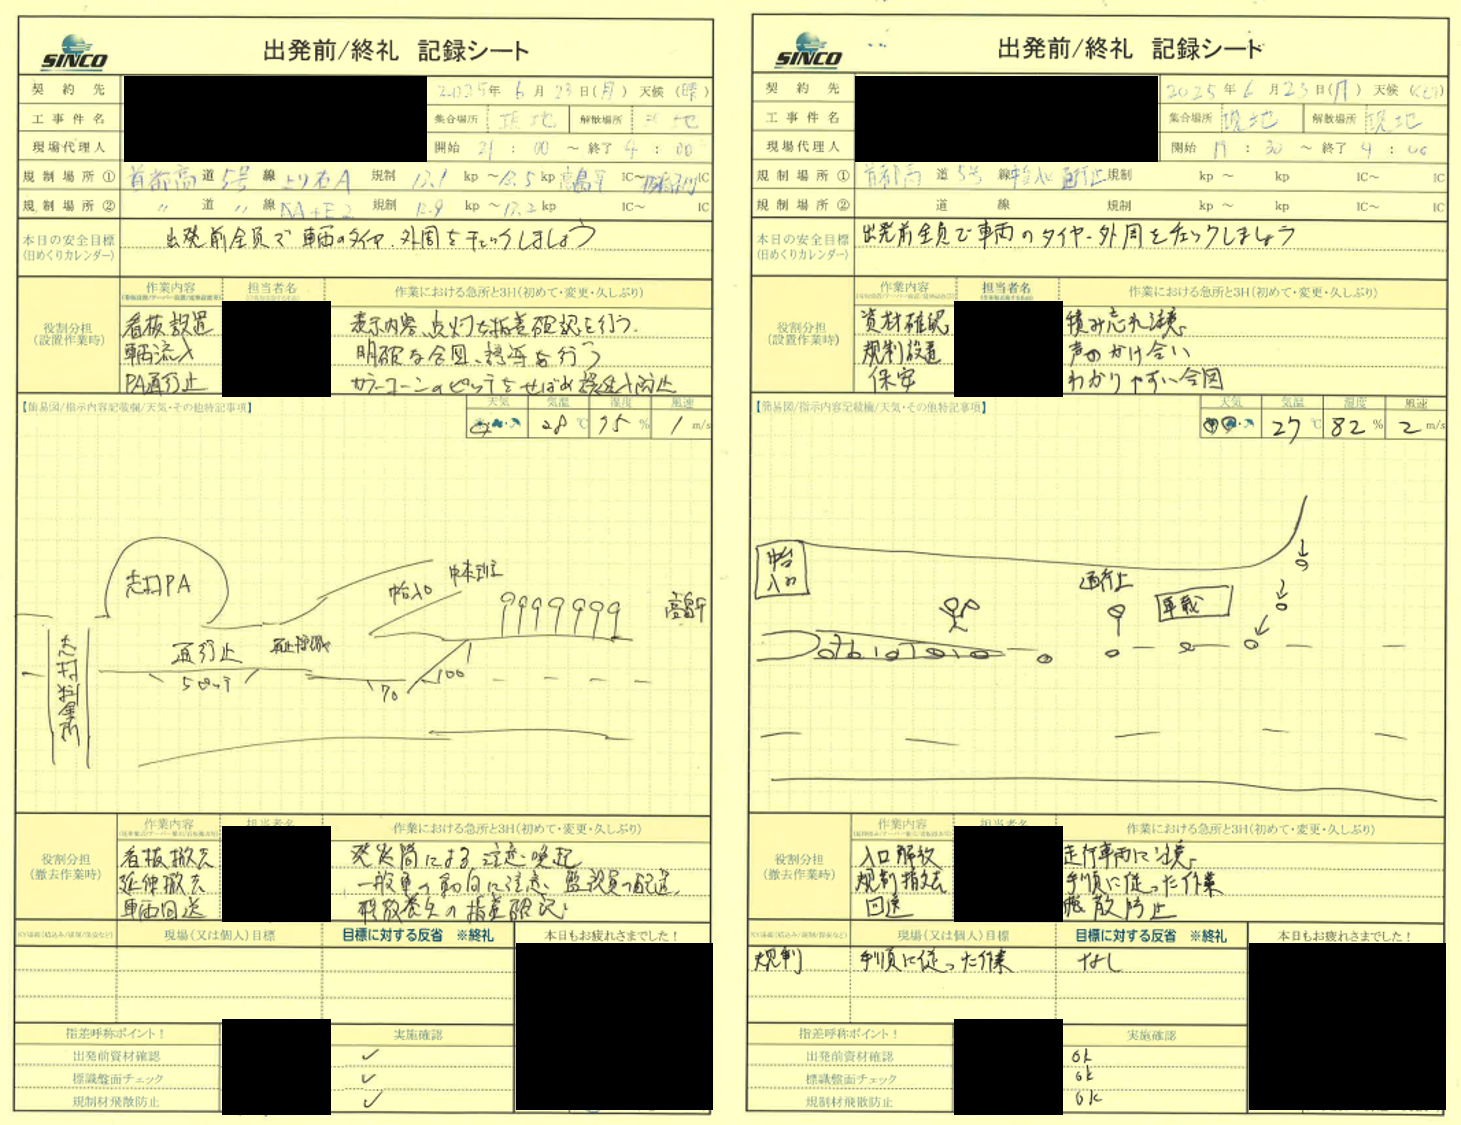 SINCO
出発前/終礼 記録シート
契約先
2025年 6月 23日(月) 天候(晴)
工事件名
集合場所 現地 解散場所 現地
現場代理人
開始 21:00 ～ 終了 4:00
規制場所① 首都高 道 5号 線 上り 規制 kp ～ kp 高島平 IC～ IC
規制場所② 〃 道 〃 線 規制 kp ～ kp IC～ IC
本日の安全目標
(日めくりカレンダー)
出発前全員で車両のタイヤ、外周をチェックしましょう
作業内容 担当者名 作業における急所と3H(初めて・変更・久しぶり)
役割分担
(設置作業時)
看板設置 表示内容、点灯を指差確認を行う。
車輌流入 明確な合図、誘導を行う
PA通行止 カラーコーンのピッチをせばめ
【簡易図/指示内容記載欄/天気・その他特記事項】
天気 気温 湿度 風速
28℃ 75% 1m/s
志村PA
中台入口
高島平
通行止
5ピッチ
志村料金所
70
100
作業内容 担当者名 作業における急所と3H(初めて・変更・久しぶり)
役割分担
(撤去作業時)
看板撤去 発炎筒による注意喚起
延伸撤去 一般車の動向に注意、監視員の配置。
車両回送 指差確認。
現場(又は個人)目標 目標に対する反省 ※終礼 本日もお疲れさまでした！
指差呼称ポイント！ 実施確認
出発前資材確認 ✓
標識盤面チェック ✓
規制材飛散防止 ✓
SINCO
出発前/終礼 記録シート
契約先
2025年 6月 23日(月) 天候
工事件名
集合場所 現地 解散場所 現地
現場代理人
開始 :30 ～ 終了 4:00
規制場所① 首都高 道 5号 線 規制 kp ～ kp IC～ IC
規制場所② 道 線 規制 kp ～ kp IC～ IC
本日の安全目標
(日めくりカレンダー)
出発前全員で車両のタイヤ、外周をチェックしましょう
作業内容 担当者名 作業における急所と3H(初めて・変更・久しぶり)
役割分担
(設置作業時)
資材確認 積み忘れ注意。
規制設置 声のかけ合い
保安 わかりやすい合図
【簡易図/指示内容記載欄/天気・その他特記事項】
天気 気温 湿度 風速
27℃ 82% 2m/s
中台入口
通行止
車載
作業内容 担当者名 作業における急所と3H(初めて・変更・久しぶり)
役割分担
(撤去作業時)
入口解放 走行車両に注意。
規制撤去 手順に従った作業
回送 飛散防止
現場(又は個人)目標 目標に対する反省 ※終礼 本日もお疲れさまでした！
規制 手順に従った作業 なし
指差呼称ポイント！ 実施確認
出発前資材確認 ok
標識盤面チェック ok
規制材飛散防止 ok